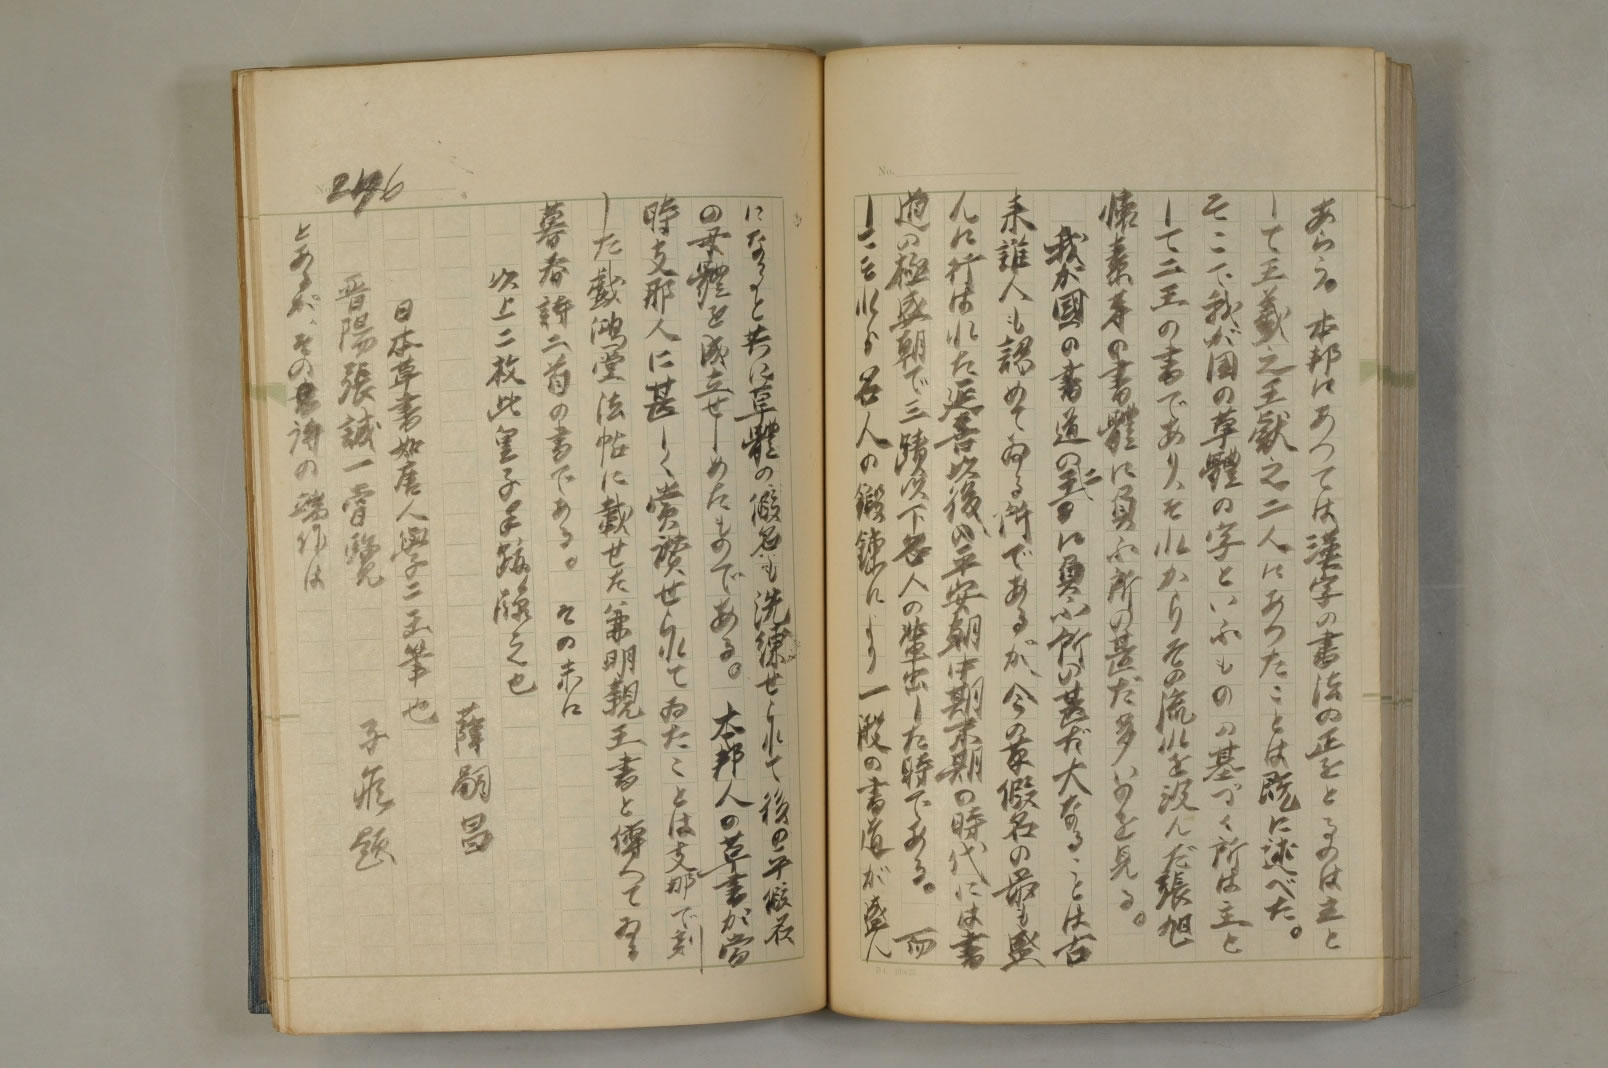 あらう。本邦にあつては漢字の書法の正をとるのは主と
して王羲之王獻之二人にあつたことは既に述べた。
そこで我が国の草體の字といふものの基づく所は主と
して二王の書であり、それからその流れを汲んだ張旭
懷素等の書體に負ふ所の甚だ多いのを見る。
我が國の書道の二王に負ふ所の甚だ大なることは古
来誰人も認めてゐる所であるが、今の草假名の最も盛
んに行はれた延喜以後の平安朝中期末期の時代には書
道の極盛朝で三蹟以下名人の輩出した時である。而
してそれら名人の鍛錬により一般の書道が盛ん
になると共に草體の假名も洗練せられて後の平假名
の母體を成立せしめたものである。本邦人の草書が當
時支那人に甚しく賞讚せられてゐたことは支那で刻
した戲鴻堂法帖に載せた兼明親王書と傳へてゐる
暮春詩二首の書である。その末に
以上二枚此皇子手跡線之也
薛嗣昌
日本草書如唐人學二王筆也
晋陽張誠一嘗覽
子 題
とあるが、その詩の端作は
No.
No.